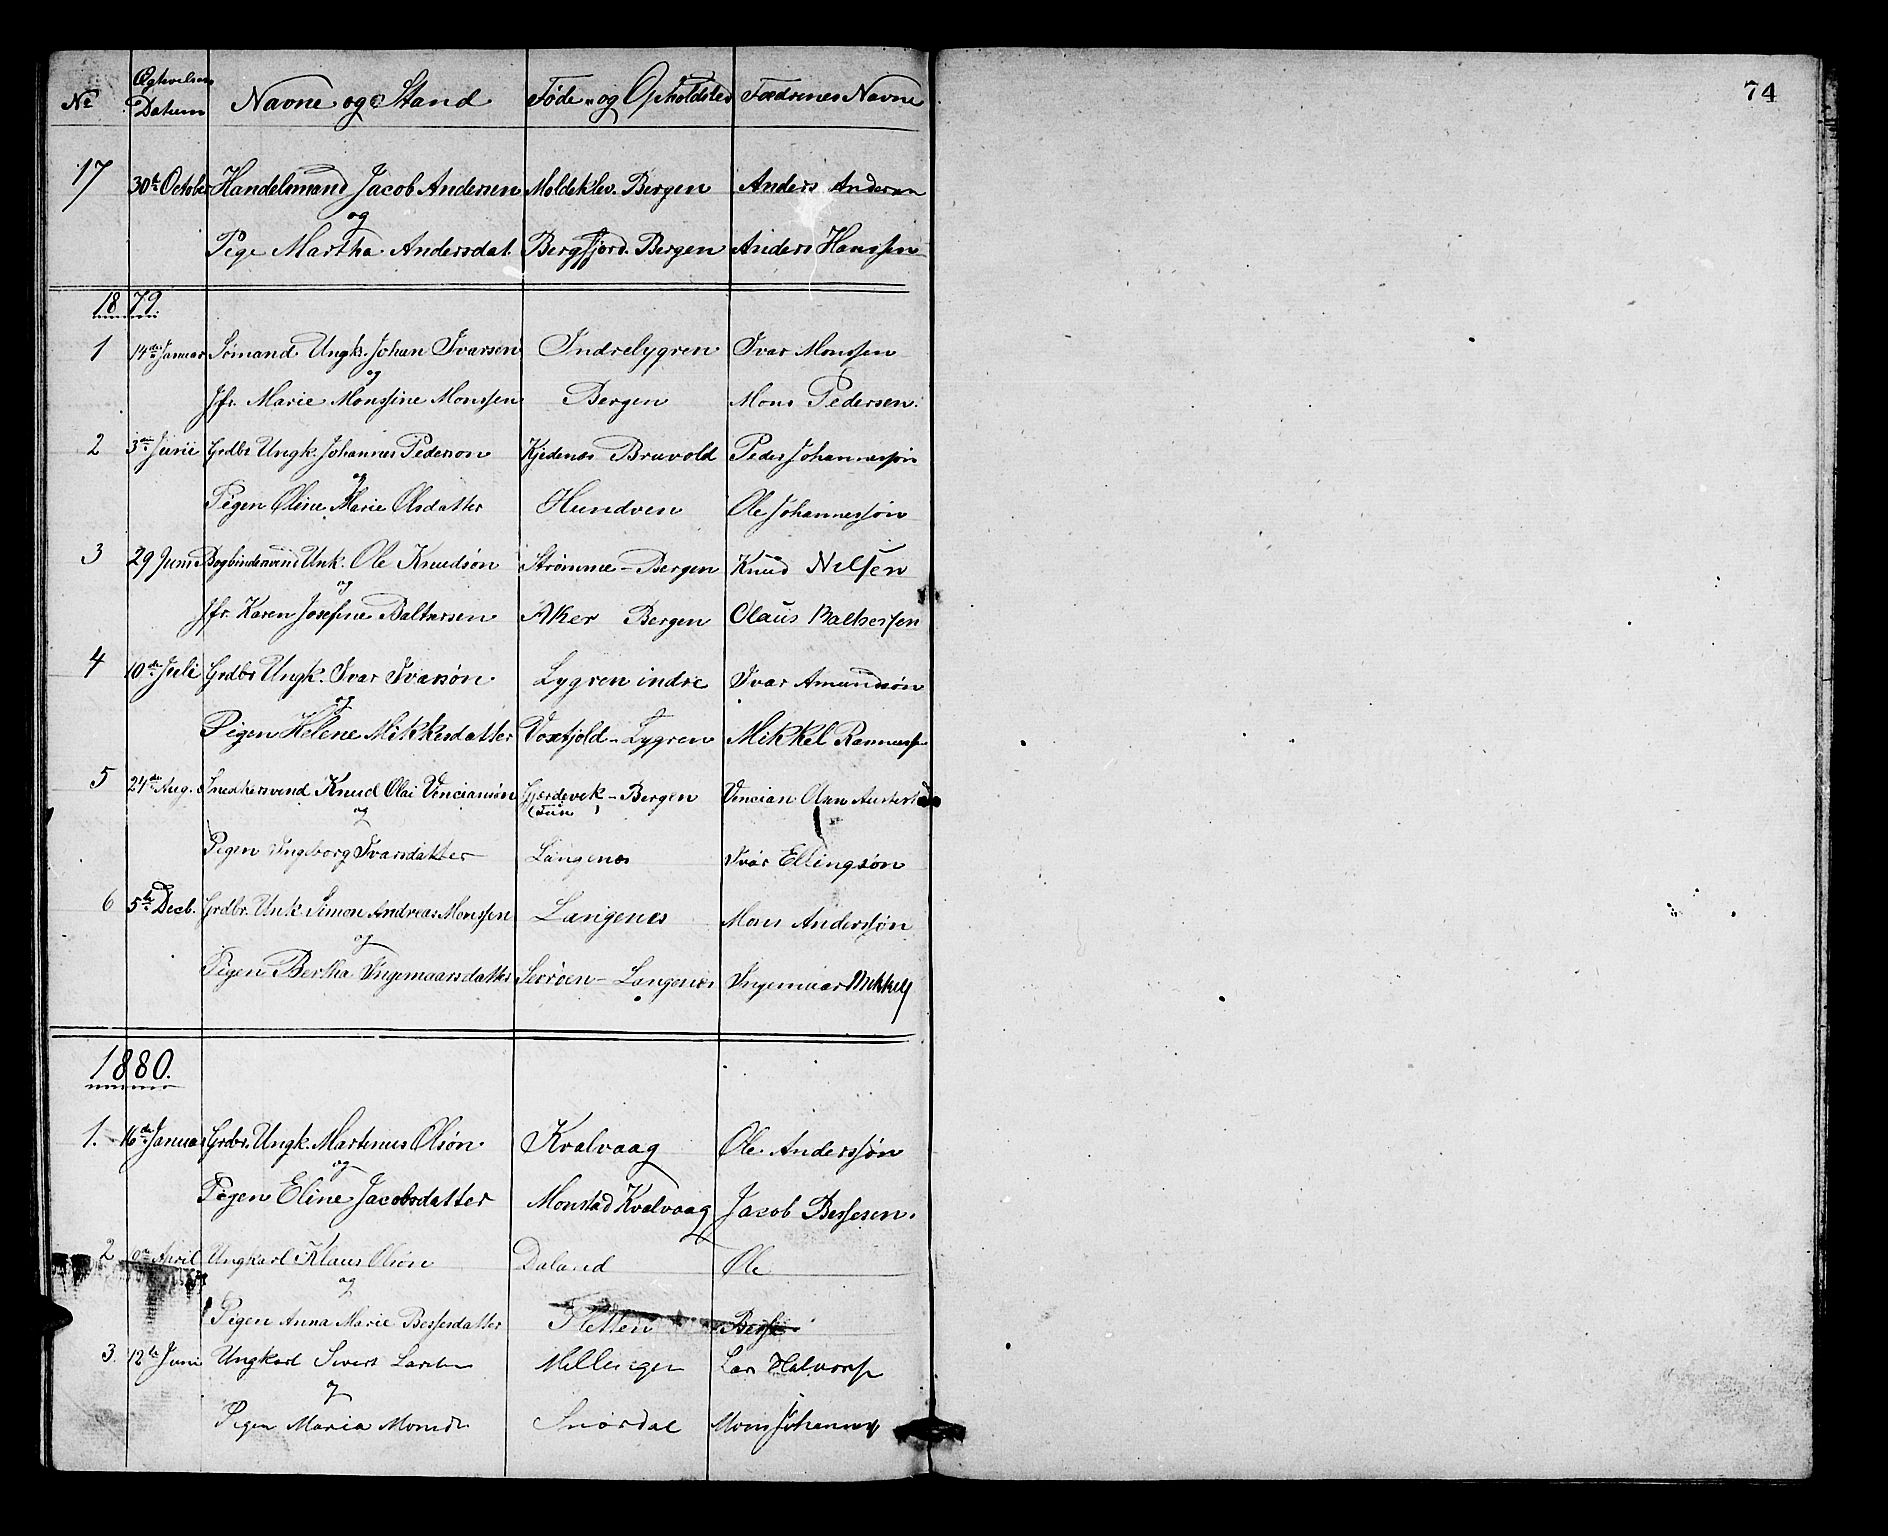 74
No Ægtvelsens Datum Navne og Stand Föde- og Opholdsted Fædrenes Navne
17 30te October Handelsmand Jacob Andersen Moldeklev. Bergen Anders Andersen
og
Pige Martha Andersdat. Bergsfjord. Bergen Anders Hanssen
1879.
1 14de Januar Sömand Ungk. Johan Ivarsen Indrelygren Ivar Monssen
og
Jfr. Marie Monssine Monssen Bergen Mons Pedersen.
2 3die Junii Grdbr Ungk. Johannes Pederson Kjedenes Bruvold Peder Johannessøn
og
Pigen Oline Marie Olsdatter Hundven Ole Johannessøn
3 29 Juni Bogbindersvend Unk. Ole Knudsøn Strömme - Bergen Knud Nilsen
og
Jfr. Karen Josefine Baltzersen Aker Bergen Olaus Balthersen
4 10de Juli Grdbr Ungk. Ivar Ivarsøn Lygren indre Ivar Amundsøn
og
Pigen Helene Mikkesdatter - Lygren Mikkel
5 24de Aug. Snedkersvend Knud Olai Vencianson Gjerdevik - Bergen Vencian
og
Pigen Ingeborg Ivarsdatter Langenes Ivar Ellingsøn
6 5te Decb. Grdbr. Unk Simon Andreas Monssen Langenes Mons Anderssøn
og
Pigen Bertha Ingemaarsdatter - Langenes Ingemaar
1880.
1. 16de Januar Grdbr. Ungk. Martinus Olsøn Kvalvaag Ole Anderssøn
og
Pigen Eline Jacobsdatter Monstad Kvalvaag Jacob Bessesen.
2 April Ungkarl Klaus Olsøn Daland Ole
og
Pigen Anna Marie Bessesdatter Fletten Besse
3. 12te Juni Ungkarl Sivert Larsen Lars
og
Pigen Maria Monsdr Mons